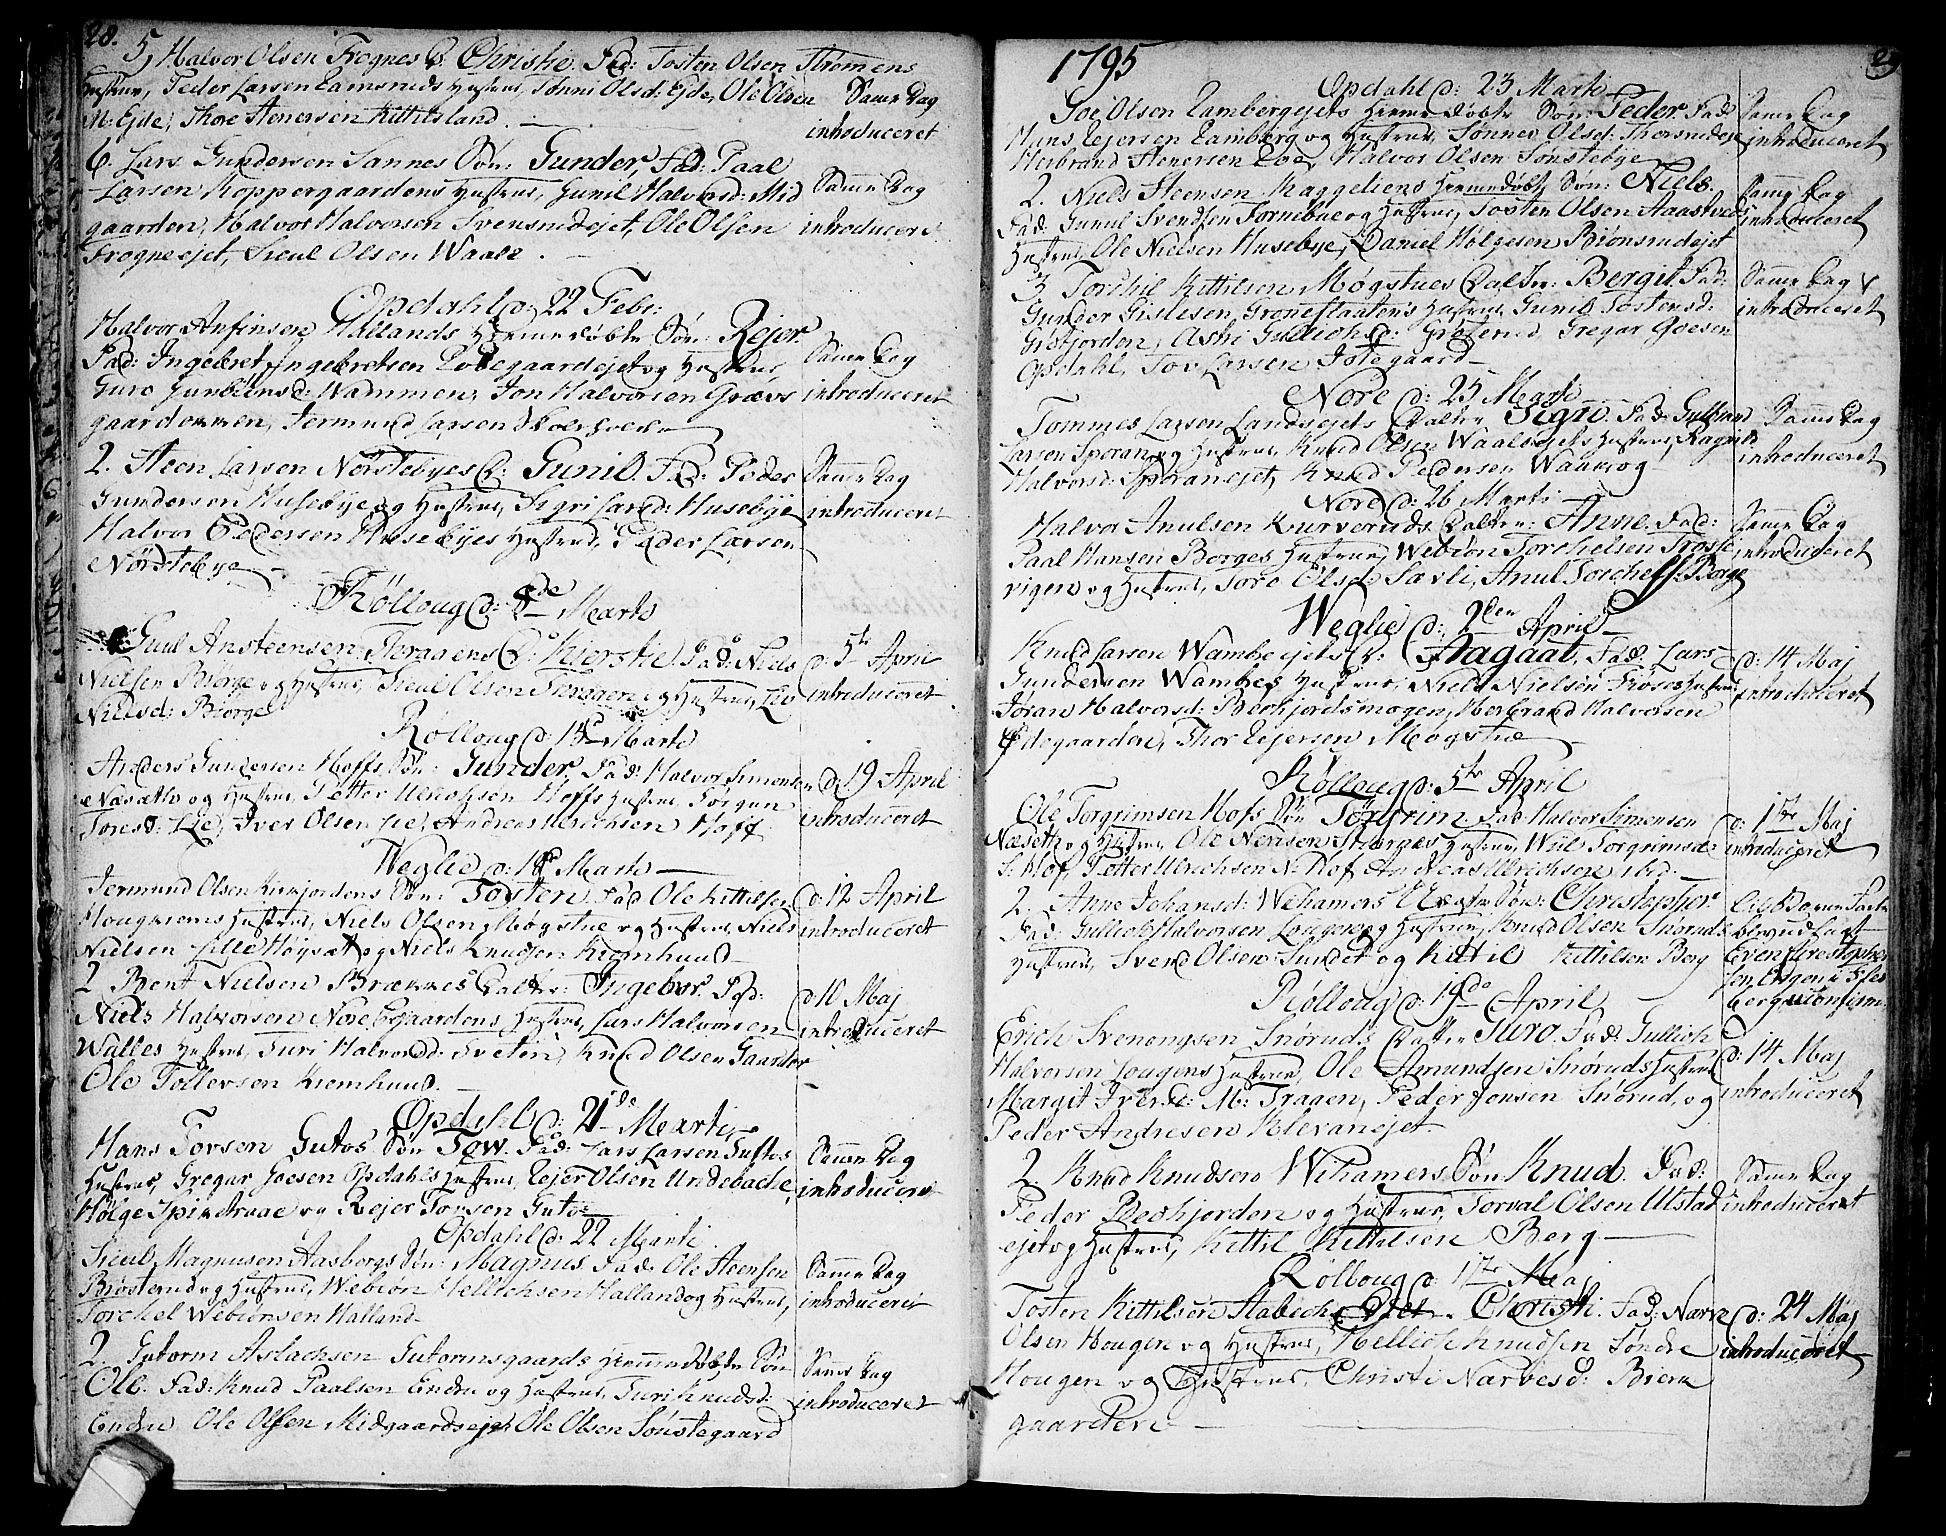 28.
5, Halvor Olsen Frognes D. Christie. Fad: Tosten Olsen Strømens
Hustrue, Peder Larsen Hustrue, Tønni Olsd: Eide, Ole Olsen
N: Eide, Thore Stenersen Kittilsland.
Samme Dag
introduceret
6. Lars Gundersen Sannes Søn: Gunder, Fad: Paal
Larsen Koppergaardens Hustrue, Gunil Halvorsd: Mid
gaarden, Halvor Halvorsen Svensrudejet, Ole Olsen
Frogneejet, Sieul Olsen Waale.
Samme Dag
introduceret
Opdahl d: 22 Febr:
Halvor Anfinsen Hallands Hiemmedøbte Søn: Rejer.
Fad: Ingebret Ingebretsen ejet og Hustrue,
Guro Gunbiensd: Wammen, Jon Halvorsen Grævs
gaardokken, Jermund Larsen
Samme Dag
introduceret
2. Steen Larsen Nørstebyes D: Gunil. Fad: Peder
Gundersen Husebye og Hustrue, Sigri Larsd: Husebye
Halvor Pedersen Husebyes Hustrue, Peder Larsen
Nørstebye
Samme Dag
introduceret
Rølloug d: 8de Marts
Guul Ansteensen Traagens D: Kierstie. Fad: Niels
Nielsen Biørge og Hustrue, Sieul Olsen Traagen og Hustrue, Liv
Nielsd: Biørge
d: 5te April
introduceret
Rølloug d: 15de Marti
Anders Gundersen Hoffs Søn: Gunder, Fad: Halvor Simonsen
Næsæth og Hustrue, Petter Ulrichsen Hoffs Hustrue, Jørgen
Toresd: Lie, Iver Olsen Lie, Andreas Ulrichsen Hoff
d: 19 April
introduceret
Weglie d: 18de Marts
Jermund Olsen Kirkjordens Søn: Tosten Fad: Ole Kittilsen
Hougkiems Hustrue, Niels Olsen Møgstue og Hustrue, Niels
Nielsen Lille Høysæt og Niels Knudsen Kromhuud
d: 12 April
introduceret
2 Bent Nielsen Brækkes Datter: Ingebor. Fad:
Niels Halvorsen Nore Eegaardens Hustrue, Lars Halvorsen
Walles Hustrue, Turi Halvorsd: Tvetin, Knud Olsen Gaarder
Ole Tollevsen Kromhuud.
d: 10 Maj
introduceret
Opdahl d: 21de Marti
Hans Torsen Gutos Søn Tow. Fad: Lars Larsen Guttos
Hustrue, Gregar Joesen Opdahls Hustrue, Rejer Olsen Undebache,
Hølge Spikstruae og Rejer Torsen Guto
Samme Dag
introduceret
Opdahl d: 22 Marti
Sieul Magnusen Aasborgs Søn: Magnus. Fad: Ole Steensen
Brøsterud og Hustrue, Webiøn Hellichsen Halland og Hustrue,
Torchel Webiønsen Halland
Samme Dag
introduceret
2. Gutorm Aslachsen Gutormsgaards Hiemmedøbte Søn
Ole. Fad: Knud Paalsen Endru og Hustrue, Turi Knudsd:
Endru Ole Olsen Midgaardsejet, Ole Olsen Sønstegaard
Samme Dag
introduceret
1795
29
Opdahl d: 23 Marti
Joe Olsen Lambergejets Hiemmedøbte Søn: Peder. Fad:
Hans Rejersen Lamberg og Hustrue, Sønnev Olsd: Thorsrudejet
Herbrand Stenersen Halvor Olsen Sønstebye
Samme Dag
introduceret
2. Niels Steensen Maggeliens Hiemmedøbt Søn: Niels.
Fad: Gunul Svendsen Tornebue og Hustrue, Tosten Olsen Aaastveds
Hustrue, Ole Nielsen Husebye, Daniel Holgesen Biønsrudejet
Samme Dag
introduceret
3 Torchil Kittilsen Møgstues Datter: Bergit. Fad:
Gunder Gislesen Grønestaatens Hustrue, Gunil Tostensd:
Grøtfjorden, Astri Gullichsd: Grøterud Gregar Joesen
Opdahl, Tov Larsen Jøtegaard
Samme Dag
introduceret
Nore d: 25 Marti
Tommes Larsen Landsejets Datter Sigri. Fad: Gulbrand
Larsen Sporan og Hustrue, Knud Olsen Waalsejets Hustrue, Ragnil
Halvorsd: Sporanejet, Knud Pedersen Waalog
Samme Dag
introduceret
Nore d: 26 Marti
Halvor Anulsen Kurveruds Datter: Anne. Fad:
Paal Hansen Borges Hustrue, Webiøn Torchelsen Frose
vigen og Hustrue, Tore Olsd: Sævli, Anul Torchels: Borge
Samme Dag
introduceret
Weglie d: 2den April
Knud Larsen Wambeejets D: Aagaat, Fad: Lars
Gundersen Wambes Hustrue, Niels Nielsen Frøses Hustrue
Jøran Halvorsd: Beckjordsmogen, Herbrand Halvorsen
Ødegaarden, Thor Rejersen Møgstue
d: 14 Maj
introduceret
Rølloug d: 5te April
Ole Torgrimsen Hofs Søn Torgrim Fad: Halvor Simensen
Næseth og Hustrue Ole Nerisen Stuarges Hustrue, Wiil Torgrimsd:
S: Hof, Petter Ulrichsen N: Hof Andreas Ulrichsen ibid.
d: 1te Maj
introduceret
2. Anne Johansd: Wehamers Uægte Søn: Christopher
Fad: Gullich Halvorsen Lougens Hustrue, Knud Olsen Snøruds
Hustrue, Svend Olsen Sundet og Kittil Kittilsen Berg
Til Barne Fader
blev udlagt
Even Christopher
sen
berg
Rølloug d: 19de April
Erich Svenongsen Snøruds Datter Guro. Fad: Gullich
Halvorsen Lougens Hustrue, Ole Amundsen Snøruds Hustrue
Margit Iversd: M: Tragen, Peder Jonsen Snørud, og
Peder Andresen Klevanejet
d: 14 Maj
introduceret
2. Knud Knudsen Wehamers Søn Knud. Fad:
Peder Beckjorden og Hustrue, Torval Olsen Ulstad
ejet og Hustrue, Kittil Kittilsen Berg
Samme Dag
introduceret
Rølloug d: 17de Maj
Tosten Kittilsen Stabech Christi. Fad: Narve
Olsen Hougen og Hustrue, Hellich Knudsen Søndre
Hougen og Hustrue, Christi Narvesd: Bierke
gaardene
d: 24 Maj
introduceret